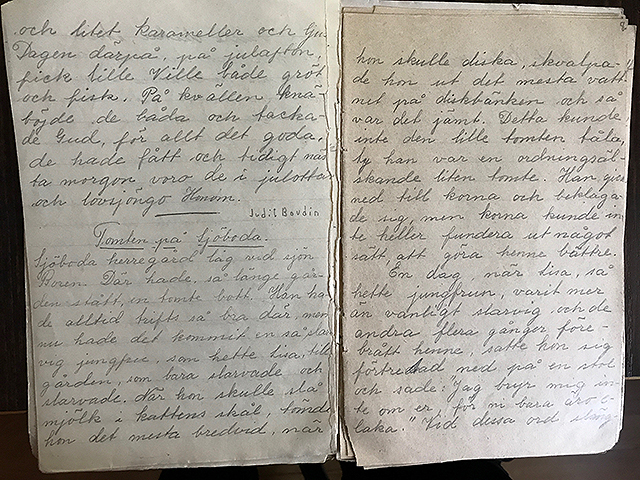 och litet karameller och
Dagen därpå, på julafton,
fick lille Ville både gröt
och fisk. På kvällen knä-
böjde de båda och tacka-
de Gud, för allt det goda,
de hade fått och tidigt näs
ta morgon voro de i julotta
och lovsjöngo Honom.
Judit Bovdin
Tomten på Sjöboda.
Sjöboda herregård låg vid sjön
Roren. Där hade, så länge går-
den stått, en tomte bott. Han ha
de alltid trifts så bra där, men
nu hade det kommit en så slar
vig jungfru, som hette Lisa, till
gården, som bara slarvade och
slarvade. När hon skulle slå
mjölk i kattens skål, tömde
hon det mesta bredvid, när
hon skulle diska, skvalpa-
de hon ut det mesta vatt-
net på diskbänken och så
var det jämt. Detta kunde
inte den lille tomten tåla,
ty han var en ordningsäl-
skande liten tomte. Han gick
ned till korna och beklaga-
de sig, men korna kunde in
te heller fundera ut något
sätt, att göra henne bättre.
En dag, när Lisa, så
hette jungfrun, varit mer
än vanligt slarvig och de
andra flera gånger före-
brått henne, satte hon sig
förtretad ned på en stol
och sade: "Jag bryr mig in-
te om er, för ni bara äro e-
laka." Vid dessa ord